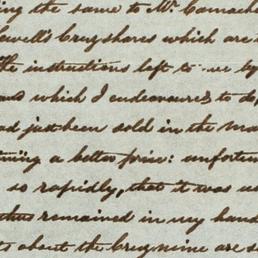 ing the same to Mr. Camache
owell's Cruz shares which are
the instructions left to me by
and which I endeavoured to do,
had just been sold in the ma
ining a better price: unfortun
so rapidly, that it was
thus remained in my hand
ts about the Cruz mine are s